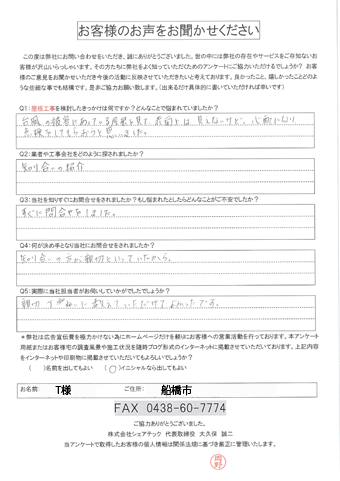 お客様のお声をお聞かせください
この度は弊社にお問い合わせをいただき、誠にありがとうございました。世の中には弊社の存在やサービスをご存知ないお
客様が沢山いらっしゃいます。その方たちに弊社をよく知っていただくためのアンケートにご協力いただけるでしょうか? お客
様のご意見をお聞かせいただき今後の活動に反映させていただきたいと考えております。良かったこと、嬉しかったことどのよ
うな些細な事でも結構です。是非ご協力お願い致します。(出来るだけ具体的に書いていただければ幸いです)
Q1:屋根工事を検討したきっかけは何ですか?どんなことで悩まれていましたか?
台風の被害にあっている屋根を見て、表面上は見えないけど、心配になり
点検をしてもらおうと思いました。
Q2:業者や工事会社をどのように探されましたか?
知り合いの紹介
Q3:当社を知りすぐにお問合せをされましたか?もし悩まれたとしたらどんなことがご不安でしたか?
すぐに問合せをしました。
Q4:何が決め手となり当社にお問合せをされましたか?
知り合いの方から親切といっていたから。
Q5:実際に当社担当者がお伺いしていかがでしたでしょうか?
親切 丁寧に 教えていただけてよかったです。
*弊社は広告宣伝費を極力かけない為にホームページだけを頼りにお客様への営業活動を行っております。本アンケート
用紙またはお客様宅の調査風景や施工状況を随時ブログ形式のインターネットに掲載させていただいております。上記内容
をインターネットや印刷物に掲載させていただいてもよろしいでしょうか?
( )名前を出してもよい (○)イニシャルなら出してもよい
お名前: T様 ご住所: 船橋市
FAX 0438-60-7774
ご協力ありがとうございました。
株式会社シェアテック 代表取締役 大久保 誠二
当アンケートで取得したお客様の個人情報は関係法規に基づき厳正に管理いたします。